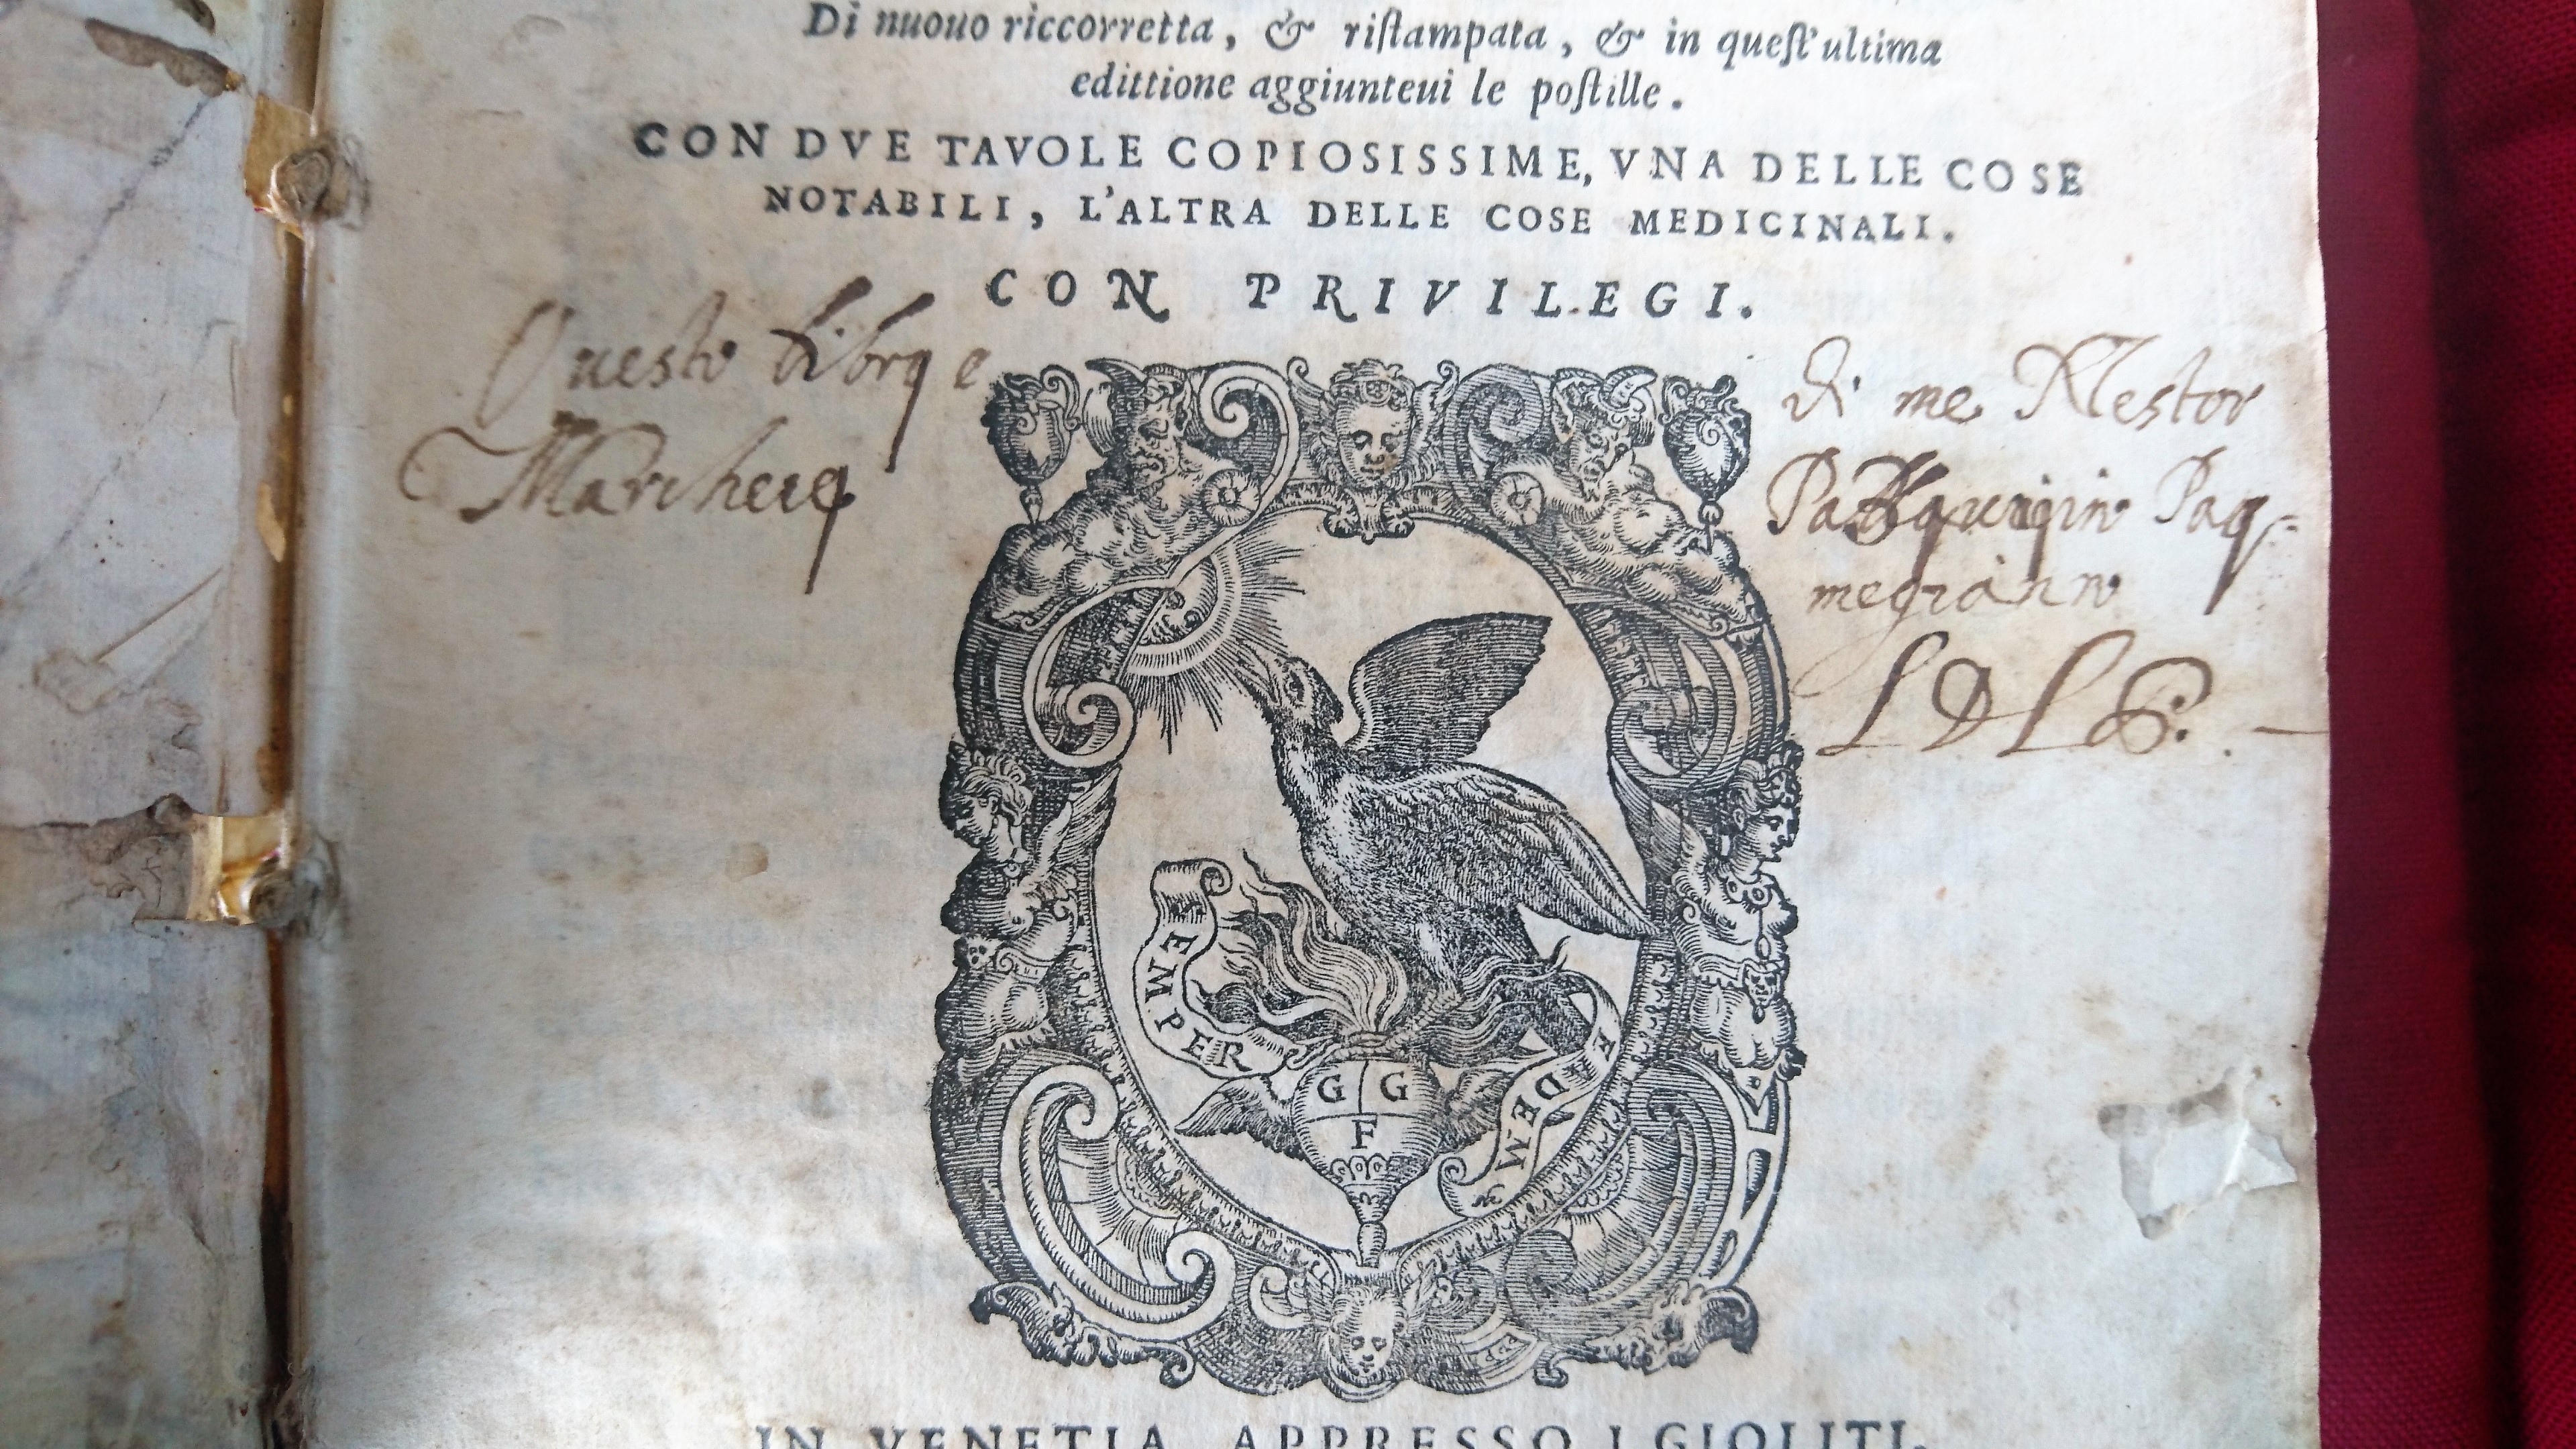 Di nuouo riccorretta, & riſtampata, & in queſt'ultima
edittione aggiunteui le poſtille.
CON DVE TAVOLE COPIOSISSIME, VNA DELLE COSE
NOTABILI, L'ALTRA DELLE COSE MEDICINALI.
CON PRIVILEGI.
Questo libro e
di me Nestor
L D L
SEMPER
EADEM
G G
F
IN VENETIA APPRESSO I GIOLITI.